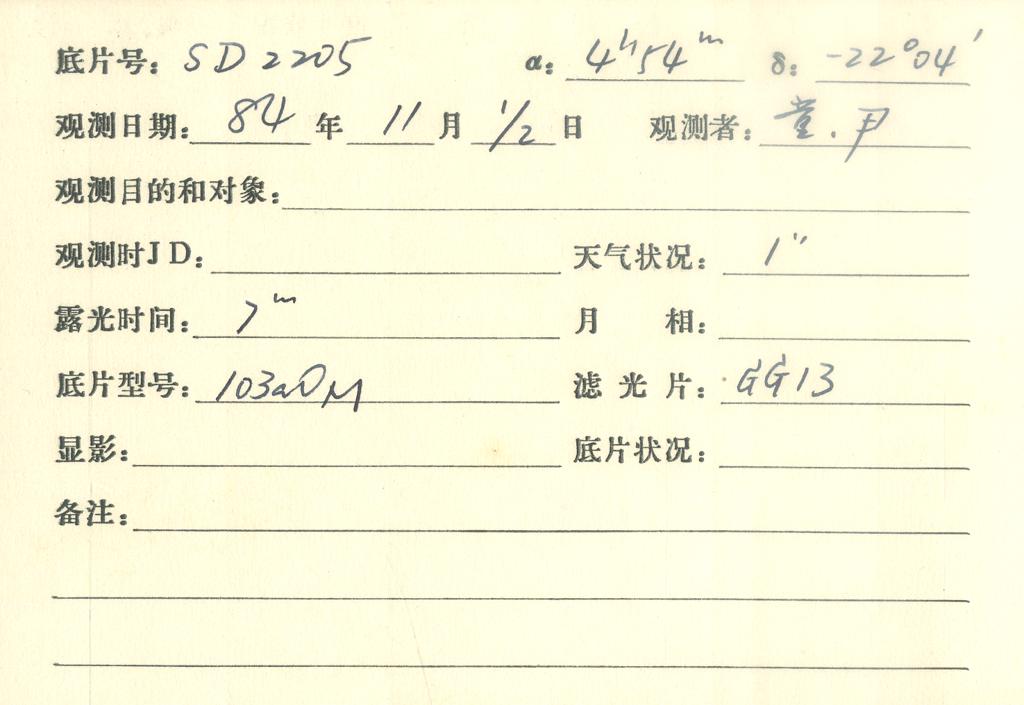 底片号：SD2205 α：4ʰ54ᵐ δ：-22°04′
观测日期：84年11月1/2日 观测者：童.尹
观测目的和对象：
观测时JD： 天气状况：1″
露光时间：7ᵐ 月 相：
底片型号：103aO 滤光片：GG13
显影： 底片状况：
备注：